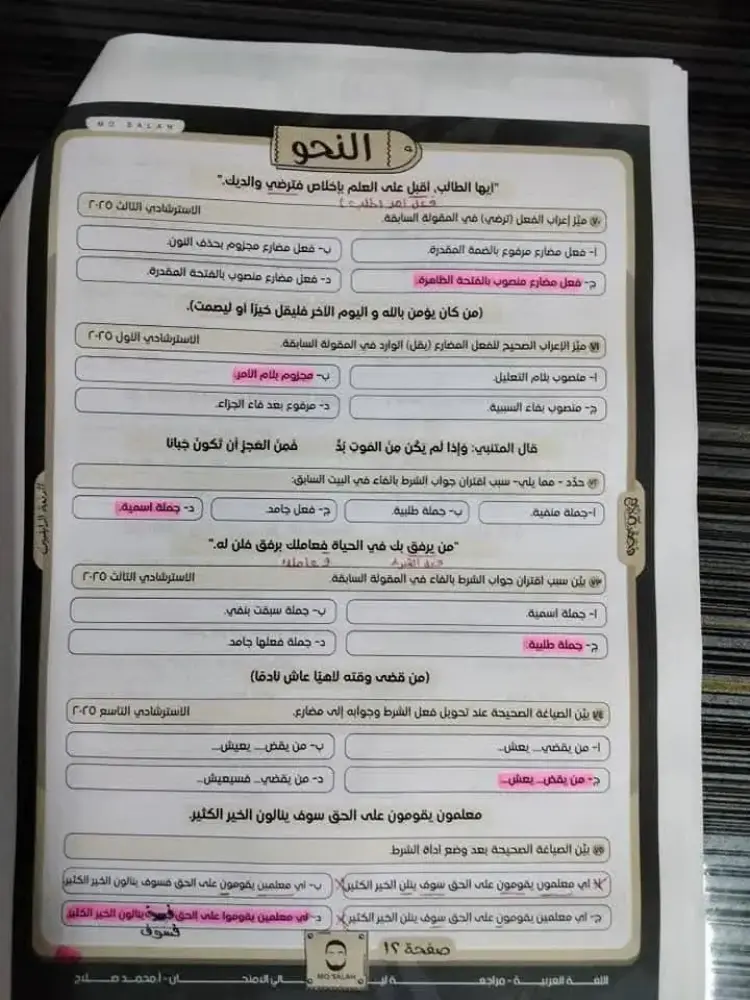 MO SALAH
النحو
"ايها الطالب، أقبل على العلم بإخلاص فترضي والديك."
فعل أمر (طلب)
٧٠ ميّز إعراب الفعل (ترضي) في المقولة السابقة. الاسترشادي الثالث ٢٠٢٥
أ- فعل مضارع مرفوع بالضمة المقدرة. ب- فعل مضارع مجزوم بحذف النون.
ج- فعل مضارع منصوب بالفتحة الظاهرة. د- فعل مضارع منصوب بالفتحة المقدرة.
(من كان يؤمن بالله و اليوم الآخر فليقل خيرًا أو ليصمت).
٧١ ميّز الإعراب الصحيح للفعل المضارع (يقل) الوارد في المقولة السابقة. الاسترشادي الأول ٢٠٢٥
أ- منصوب بلام التعليل. ب- مجزوم بلام الأمر.
ج- منصوب بفاء السببية. د- مرفوع بعد فاء الجزاء.
قال المتنبي: وَإِذا لَم يَكُن مِنَ المَوتِ بُدٌّ فَمِنَ العَجزِ أَن تَكونَ جَبانا
٧٢ حدّد - مما يلي- سبب اقتران جواب الشرط بالفاء في البيت السابق:
أ-جملة منفية. ب- جملة طلبية. ج- فعل جامد. د- جملة اسمية.
"من يرفق بك في الحياة فعاملك برفق فلن له."
٧٣ بيّن سبب اقتران جواب الشرط بالفاء في المقولة السابقة. الاسترشادي الثالث ٢٠٢٥
أ- جملة اسمية. ب- جملة سبقت بنفي.
ج- جملة طلبية. د- جملة فعلها جامد.
(من قضى وقته لاهيًا عاش نادمًا)
٧٤ بيّن الصياغة الصحيحة عند تحويل فعل الشرط وجوابه إلى مضارع. الاسترشادي التاسع ٢٠٢٥
أ- من يقضي... يعش... ب- من يقض... يعيش...
ج- من يقض... يعش... د- من يقضي... فسيعيش...
معلمون يقومون على الحق سوف ينالون الخير الكثير.
٧٥ بيّن الصياغة الصحيحة بعد وضع اداة الشرط.
أ- أي معلمون يقومون على الحق سوف ينلن الخير الكثير ب- أي معلمين يقومون على الحق فسوف ينالون الخير الكثير
ج- أي معلمين يقومون على الحق سوف ينلن الخير الكثير د- أي معلمين يقوموا على الحق فسوف ينالون الخير الكثير
فسوف
صفحة ١٢
MO SALAH